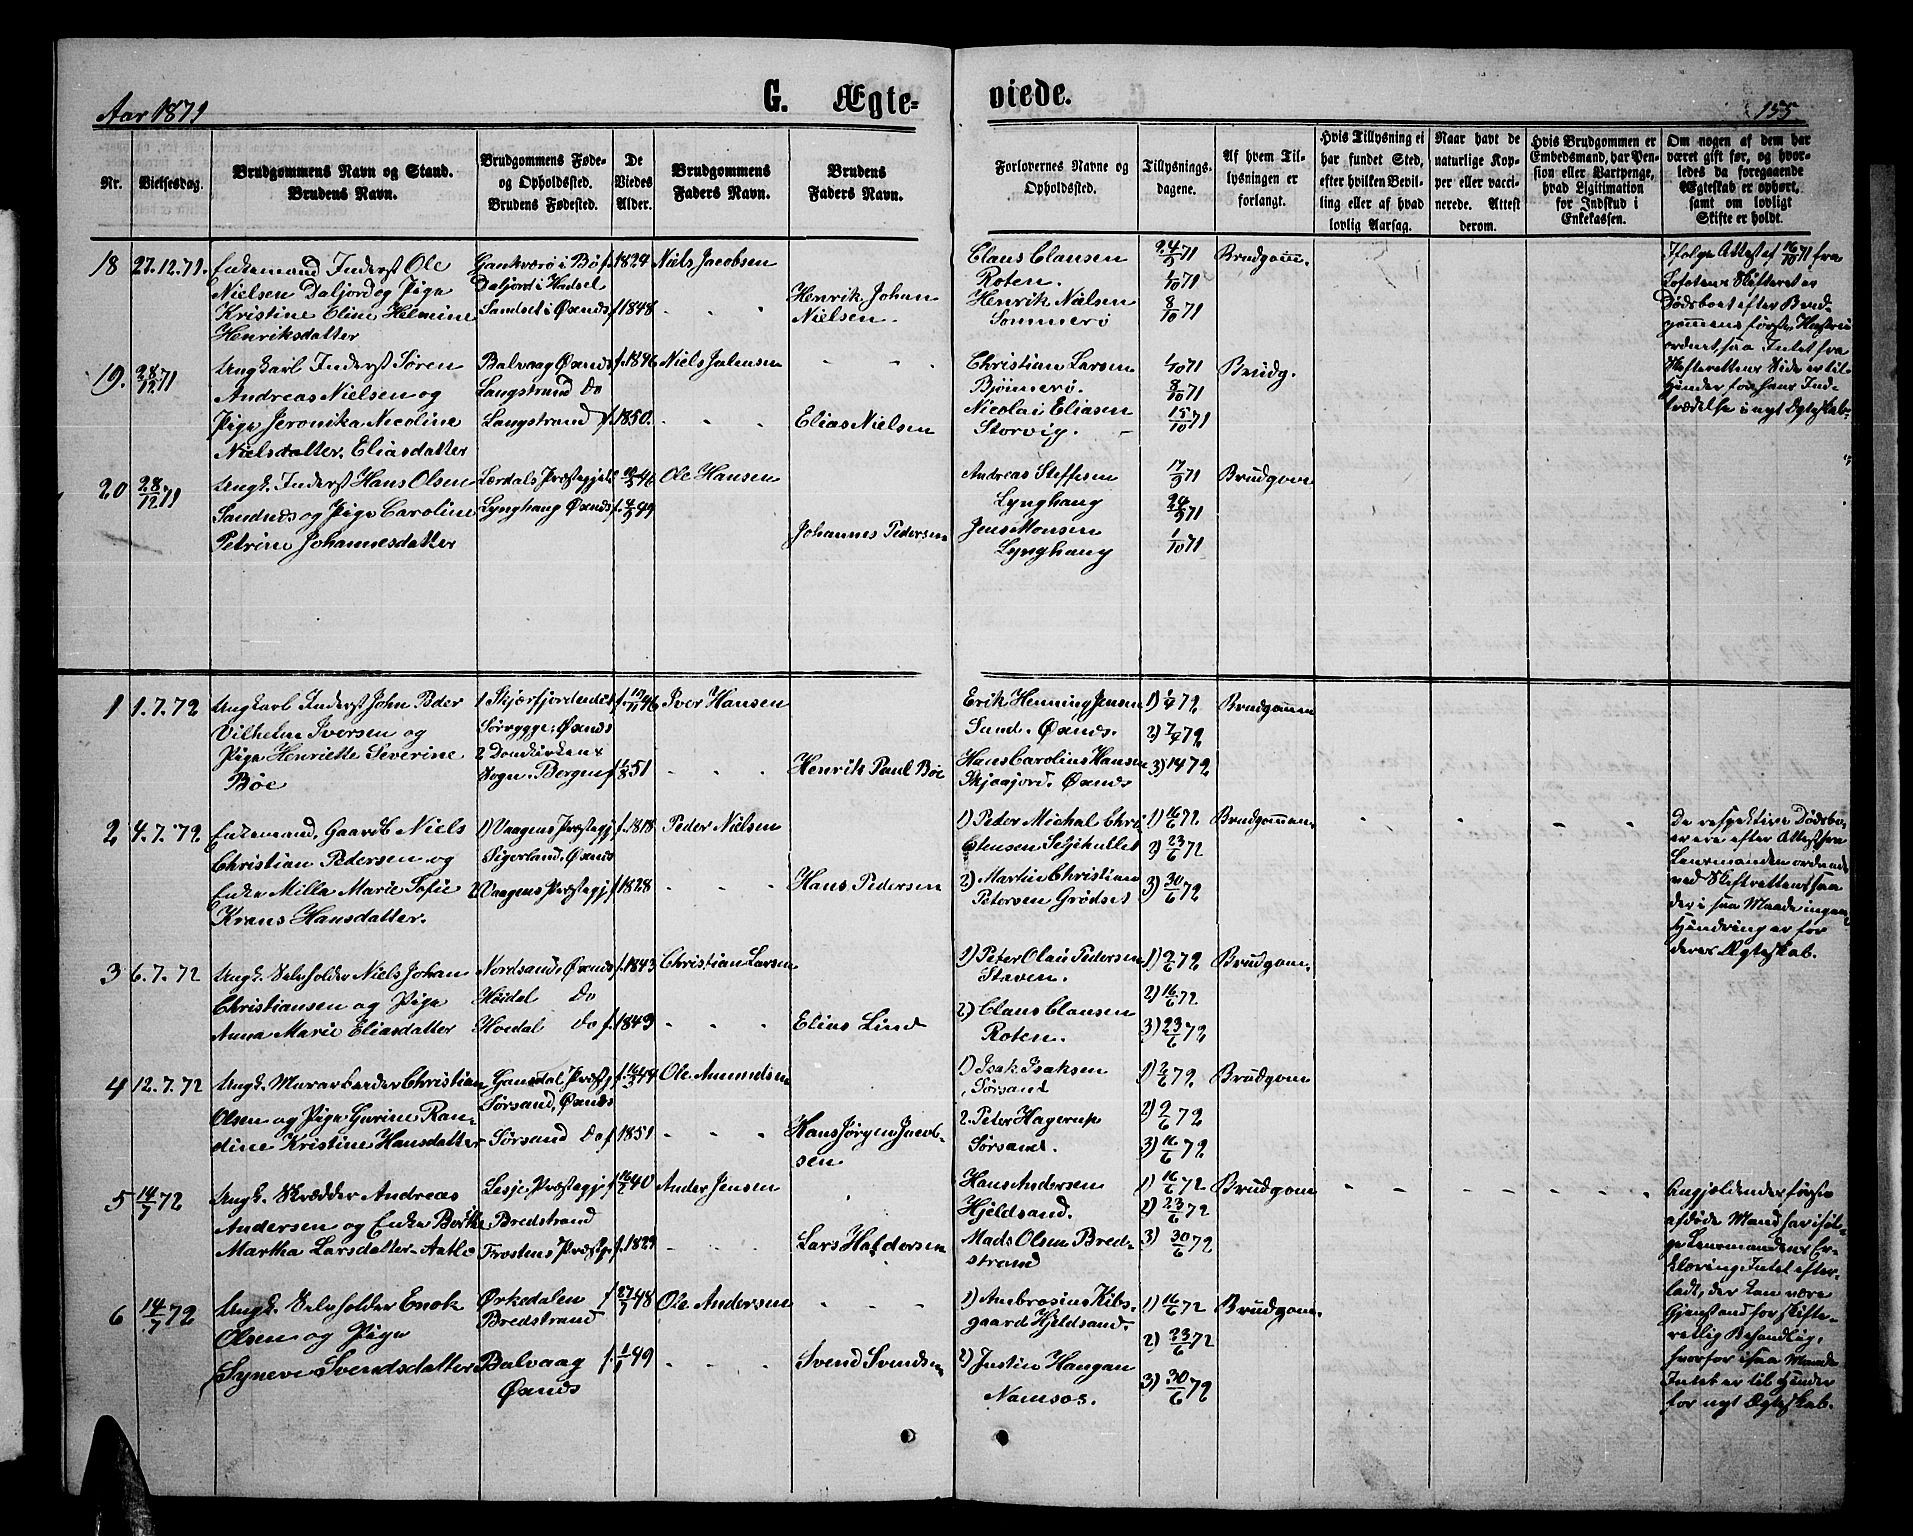 Aar 1871
G. Ægteviede.
155.
Nr.
Vielsesdag.
Brudgommens Navn og Stand.
Brudens Navn.
Brudgommens Føde-
og Opholdssted.
Brudens Fødested.
De
Viedes
Alder.
Brudgommens
Faders Navn.
Brudens
Faders Navn.
Forlovernes Navne og
Opholdssted.
Tillysnings-
dagene.
Af hvem Til-
lysningen er
forlangt.
Hvis Tillysning ei
har fundet Sted,
efter hvilken Bevil-
ling eller af hvad
lovlig Aarsag.
Naar havt de
naturlige Kop-
per eller vacci-
nerede. Attest
derom.
Hvis Brudgommen er
Embedsmand, har Pen-
sion eller Vartpenge,
hvad Ligitimation
for Indskud i
Enkekassen.
Om nogen af dem har
været gift før, og hvor-
ledes da foregaaende
Ægteskab er ophørt,
samt om lovligt
Skifte er holdt.
18 27.12.71.
Enkemand Inderst Ole
Nielsen Daljord og Pige
Kristine Eline Helmine
Henriksdatter
i Bø f. 1824
Daljord i Hadsel
Sandset i Øxnds f 1848
Niels Jacobsen
Henrik Johan
Nielsen.
Claus Clausen
Roten.
Henrik Nielsen
Sommerø
24/9 71
1/10 71
8/10 71
Brudgom.
Ifølge Attest af 16/10 71 fra
Lofotens Skifteret er
Dødsboet efter Brud-
gommens første Hustru
ordnet saa Intet fra
Skifterettens Side er til
Hinder for hans Ind-
trædelse i nyt Ægteskab.
19. 28/12 71
Ungkarl Inderst Søren
Andreas Nielsen og
Pige Jeronika Nicoline
Nielsdatter. Eliasdatter
Balvaag Øxnds f. 1846
Langstrand Do
Langstrand f. 1850.
Niels Johnsen
Elias Nielsen
Christian Larsen
Bjørnerø.
Nicolai Eliasen
Storvig.
1/10 71
8/10 71
15/10 71
Brudg.
20 28/12 71
Ungk. Inderst Hans Olsen
Sandnes og Pige Caroline
Petrine Johannesdatter
Lærdals Præstegj
Lynghaug Øxnds
Ole Hansen
Johannes Pedersen
Andreas Steffesen
Lynghaug
Jens Monsen
Lynghaug
17/9 71
24/9 71
1/10 71
Brudgom
1 1.7.72
Ungkarl Inderst John Peder
Vilhelm Iversen og
Pige Henriette Severine
Bøe
1 Skjærfjorden
Øxnds
2 Domkirkens
Sogn. Bergen
Iver Hansen
Henrik Paul Bøe
Erik Henning Jensen
Sund. Øxnds.
Hans Carolius Hansen
Skjaajord. Øxnds
1) 1/4 72
2) 7/4 72
3) 14 72
Brudgommen
2 4.7.72
Enkemand, Gaardb Niels
Christian Pedersen og
Enke Milla Marie Sofie
Krans Hansdatter.
1) Vaagens Præstegj f. 1818
Tigerland. Øxnds
2 Vaagens Præstegj f 1828
Peder Nielsen
Hans Pedersen
1) Peder Michal Chri
stensen
2) Martin Christian
Petersen Grødset
1) 16/6 72
2) 23/6 72
3) 30/6 72
Brudgommen
De respektive Dødsbo-
er ere efter Attest fra
Lensmanden ordnede
ved Skifteretten saa
der i saa Maade ingen
Hindring er for
deres Ægteskab.
3 6.7.72
Ungk. Selvholder Niels Johan
Christiansen og Pige
Anna Marie Eliasdatter
Nordsand i Øxnds f. 1843
Høidal Do
Høidal Do f. 1849
Christian Larsen
Elias Lind
1) Peter Olai Pedersen
Staven.
2) Claus Clausen
Roten.
1) 2/6 72
2) 16/6 72
3) 23/6 72
Brudgom.
4 12.7.72
Ungk. Murarbeider Christian
Olsen og Pige Gurine Ran-
dine Kristine Hansdatter
Gausdal Præstgj
Sørsand, Øxnds
Sørsand Do f 1851
Ole Amundsen
Hans Jørgen Jacob-
sen
1) Isak Isaksen
Sørsand
2. Peter Hagerup
Sørsand.
1) 2/6 72
2) 9/6 72
3) 16/6 72
Brudgom
5 14/7 72
Ungk. Skrædder Andreas
Andersen og Enke Berthe
Martha Larsdatter
Lesje Præstegj
Bredstrand
Frostens Præstegj f. 1829
Ander Jensen
Lars Haldersen
Hans Andersen
Hjeldsand.
Mads Olsen Bred-
strand
1) 16/6 72
2) 23/6 72
3) 30/6 72
Brudgom
Angjældendes første
afdøde Mand har iføl-
ge Lensmandens Er-
klæring Intet efter-
ladt, der kan være
Gjenstand for Skifte-
retlig Behandling,
hvorfor i saa Maade
Intet er til Hinder
for nyt Ægteskab.
6 14/7 72
Ungk. Selvholder Enok
Olsen og Pige
Syneve Svendsdatter
Ørkedalen f 27/7 48
Bredstrand
Balvaag f. 49
Øxnds
Ole Andersen
Svend Svendsen
1) Ambrosius Kibs-
gaard Hjeldsand.
2) Justin Haugan
Namsos.
1) 16/6 72
2) 23/6 72
3) 30/6 72
Brudgom